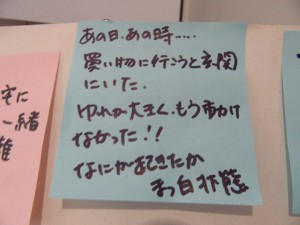 あの日、あの時‥‥‥
買い物に行こうと玄関
にいた。
ゆれが大きく、もう動け
なかった!!
なにがおきたか
まっ白状態
宅に
一緒
難